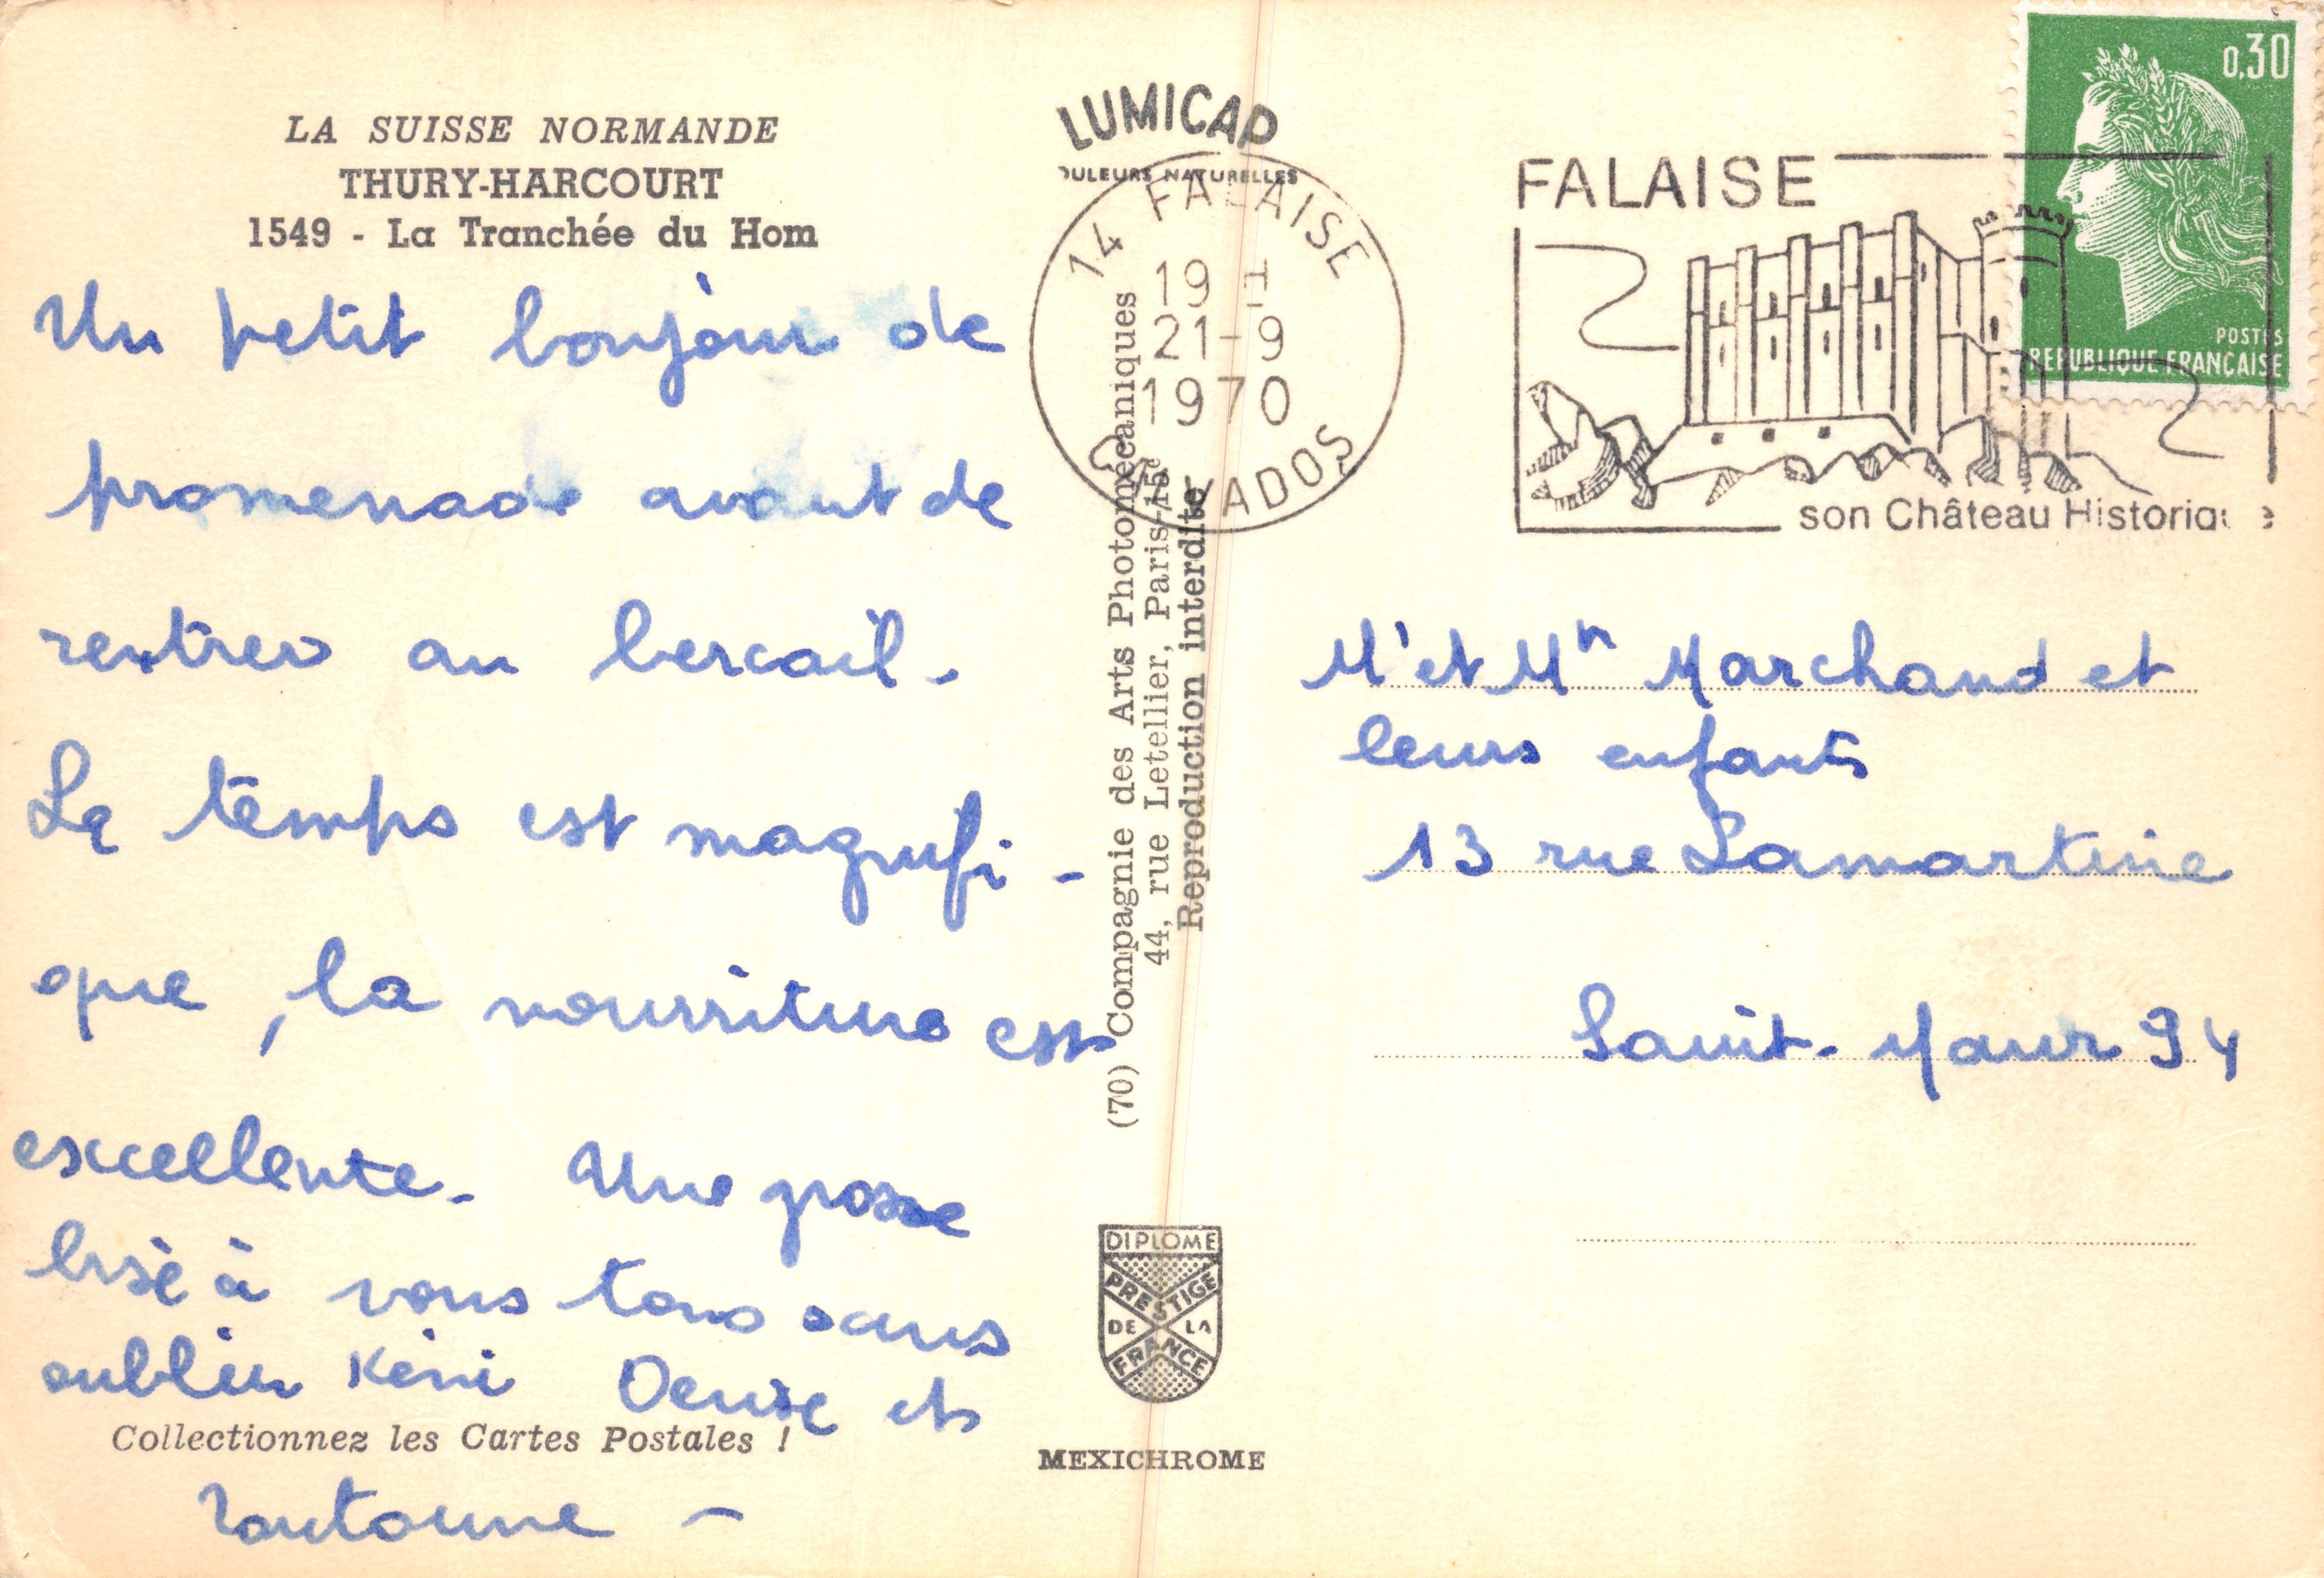 LA SUISSE NORMANDE
THURY-HARCOURT
1549 - La Tranchée du Hom
Un petit bonjour de
promenade avant de
rentrer au bercail.
Le temps est magnifi-
que, la nourriture est
excellente. Une grosse
bise à vous tous sans
oublier Kéni Denise et
Collectionnez les Cartes Postales !
Tontonne -
LUMICAP
OULEURS NATURELLES
14 FALAISE
19 H
21-9
1970
CALVADOS
(70) Compagnie des Arts Photomécaniques
44, rue Letellier, Paris-15e
Reproduction interdite
DIPLOME
PRESTIGE
DE LA
FRANCE
MEXICHROME
FALAISE
son Château Historique
0,30
POSTES
REPUBLIQUE FRANÇAISE
Mr et Mme Marchand et
leurs enfants
13 rue Lamartine
Saint-Maur 94